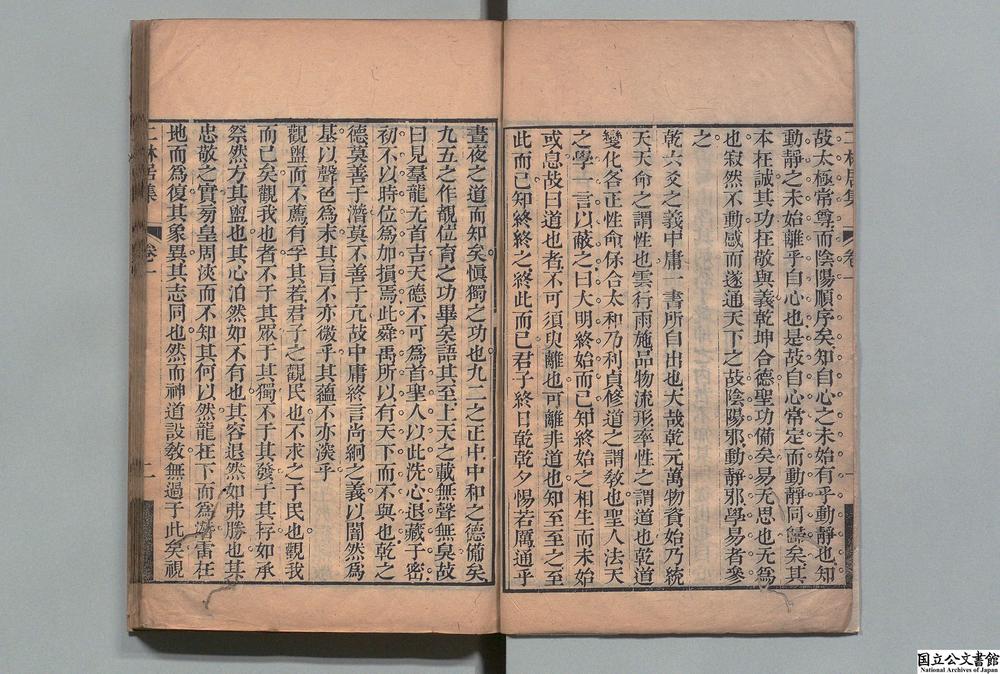 二林居集 卷一
故太極常尊而陰陽順序矣知自心之未始有乎動靜也知
動靜之未始離乎自心也是故自心常定而動靜同歸矣其
本在誠其功在敬與義乾坤合德聖功備矣易无思也无爲
也寂然不動感而遂通天下之故陰陽邪動靜邪學易者參
之
乾六爻之義中庸一書所自出也大哉乾元萬物資始乃統
天天命之謂性也雲行雨施品物流形率性之謂道也乾道
變化各正性命保合太和乃利貞修道之謂敎也聖人法天
之學一言以蔽之曰大明終始而已知終始之相生而未始
或息故曰道也者不可須臾離也可離非道也知至至之至
此而已知終終之終此而已君子終日乾乾夕惕若厲通乎
晝夜之道而知矣愼獨之功也九二之正中中和之德備矣
九五之作覩位育之功畢矣語其至上天之載無聲無臭故
曰見羣龍无首吉天德不可爲首聖人以此洗心退藏于密
初不以時位爲加損焉此舜禹所以有天下而不與也乾之
德莫善于潛莫不善于亢故中庸終言尚絅之義以闇然爲
基以聲色爲末其旨不亦微乎其蘊不亦深乎
觀盥而不薦有孚其若君子之觀民也不求之于民也觀我
而已矣觀我也者不于其眾于其獨不于其發于其存如承
祭然方其盥也其心泊然如不有也其容退然如弗勝也其
忠敬之實旁皇周浹而不知其何以然龍在下而爲潛雷在
地而爲復其象異其志同也然而神道設敎無過于此矣視
二林居集 卷一 二
国立公文書館
National Archives of Japan